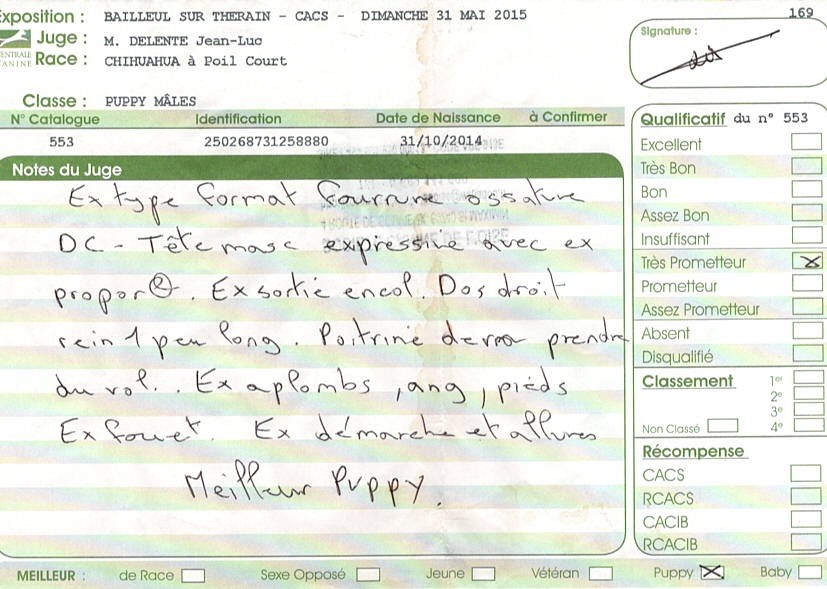 Exposition : BAILLEUL SUR THERAIN - CACS - DIMANCHE 31 MAI 2015
169
Juge : M. DELENTE Jean-Luc
CENTRALE
CANINE
Race : CHIHUAHUA à Poil Court
Signature :
Classe : PUPPY MÂLES
N° Catalogue Identification Date de Naissance à Confirmer
553 250268731258880 31/10/2014
Notes du Juge
Ex type format fourrure ossature
DC - Tête masc expressive avec ex
propor. Ex sortie encol. Dos droit
rein 1 peu long. Poitrine devra prendre
du vol.. Ex aplombs, ang, pieds
Ex fouet. Ex démarche et allures
Meilleur Puppy.
Qualificatif du n° 553
Excellent
Très Bon
Bon
Assez Bon
Insuffisant
Très Prometteur X
Prometteur
Assez Prometteur
Absent
Disqualifié
Classement 1er
2e
3e
Non Classé 4e
Récompense
CACS
RCACS
CACIB
RCACIB
MEILLEUR : de Race Sexe Opposé Jeune Vétéran Puppy X Baby